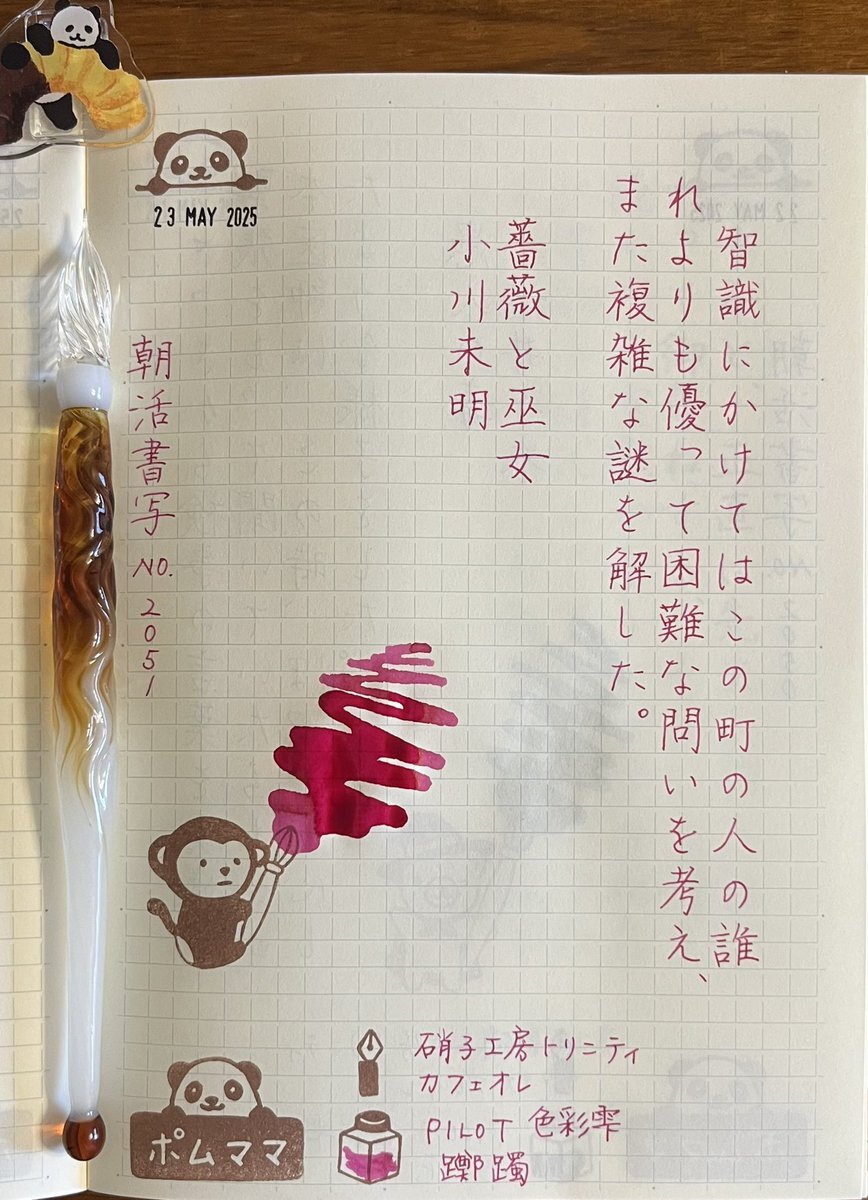 智識にかけてはこの町の人の誰
れよりも優って困難な問いを考え、
また複雑な謎を解した。
薔薇と巫女
小川未明
23 MAY 2025
朝活書写 NO. 2051
硝子工房トリニティ
カフェオレ
PILOT 色彩雫
躑躅
ポムママ